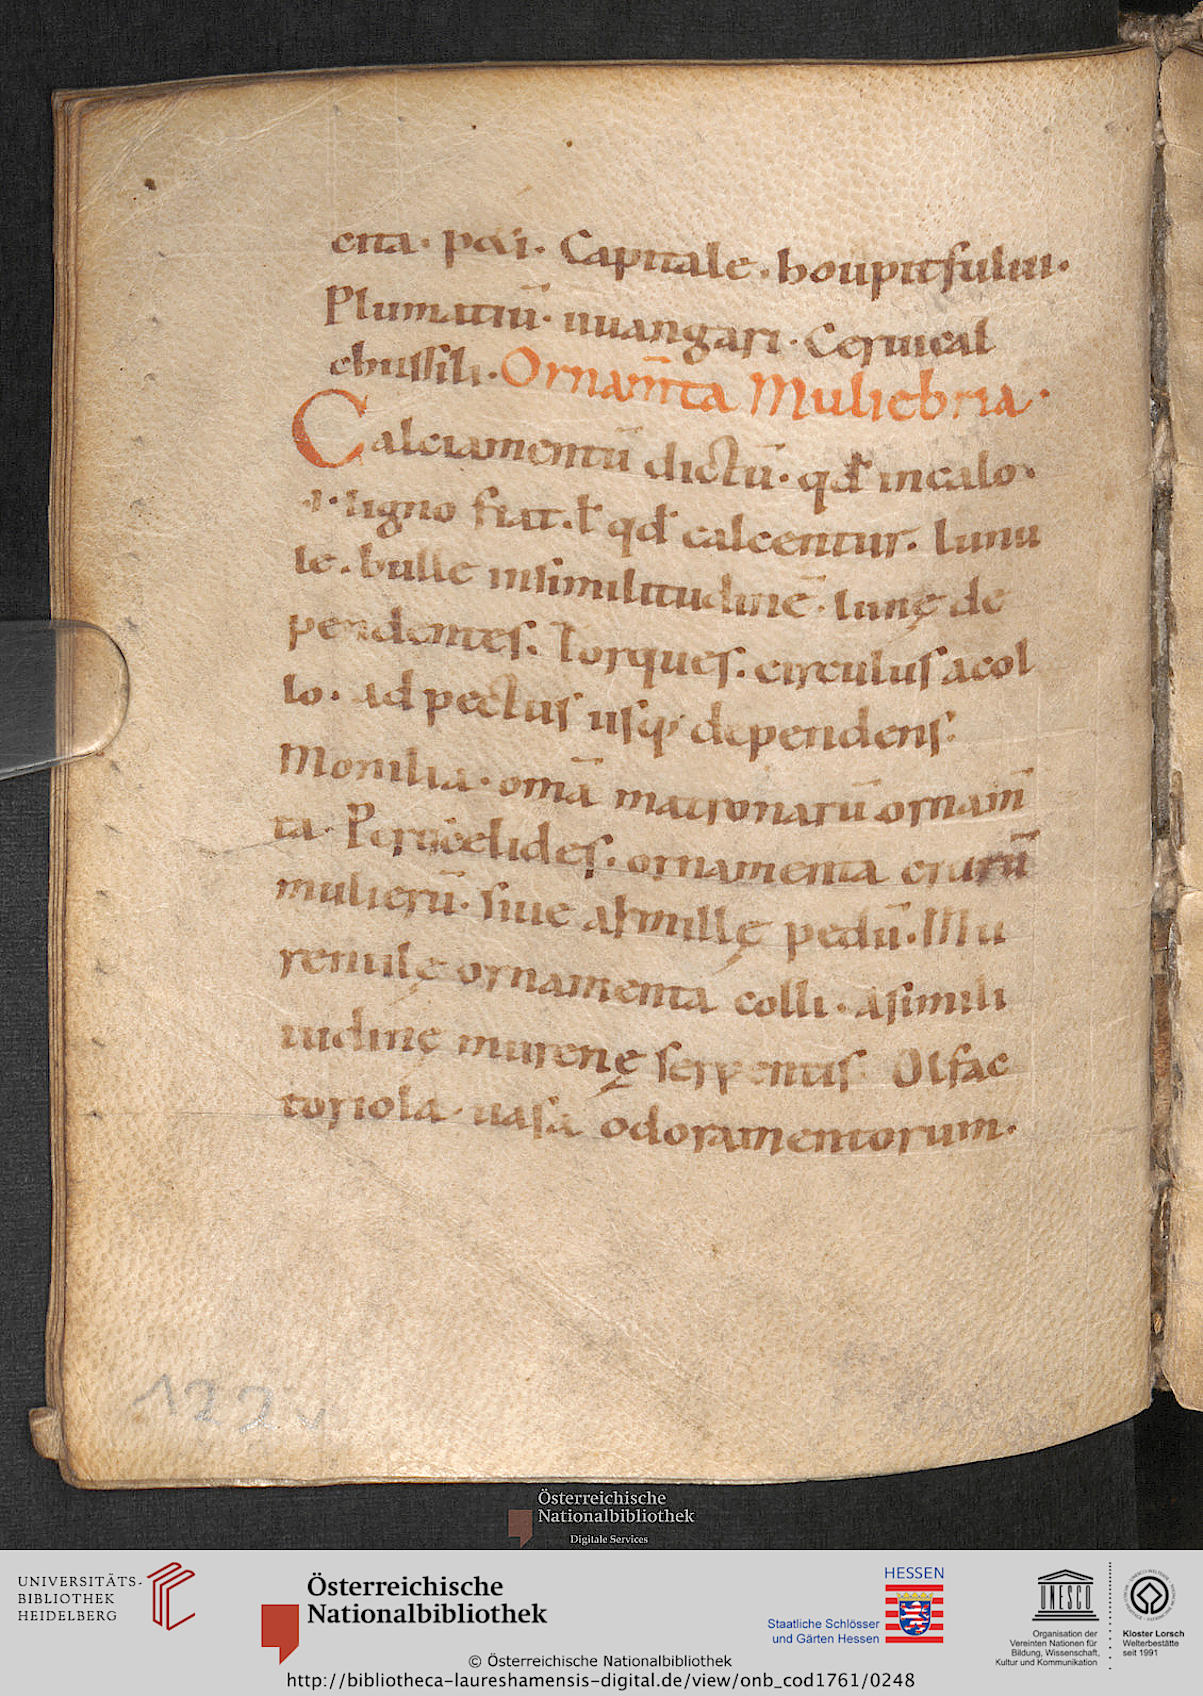 cita· p&i· Capitale· houpitsului·
Plumatiū· uuangari· Ceruical
chussili· Ornam̄ta Muliebria·
Calciamentū dictū· qđ incalo·
·i· ligno fiat· ł qđ calcentur· lunu
le· bulle insimilitudinē· lunę de
pendentes· Torques· circulus acol
lo· ad pectus usq; dependens·
Monilia· omā matronarū ornam̄
ta· Periscelides· ornamenta crurū
mulierū· siue armillę pedū· Mu
renulę ornamenta colli· asimili
tudinę murenę serpentis Olfac
toriola· uasa odoramentorum·
122v
Österreichische
Nationalbibliothek
Digitale Services
UNIVERSITÄTS-
BIBLIOTHEK
HEIDELBERG
Österreichische
Nationalbibliothek
HESSEN
Staatliche Schlösser
und Gärten Hessen
UNESCO
Organisation der
Vereinten Nationen für
Bildung, Wissenschaft,
Kultur und Kommunikation
Kloster Lorsch
Welterbestätte
seit 1991
© Österreichische Nationalbibliothek
http://bibliotheca-laureshamensis-digital.de/view/onb_cod1761/0248